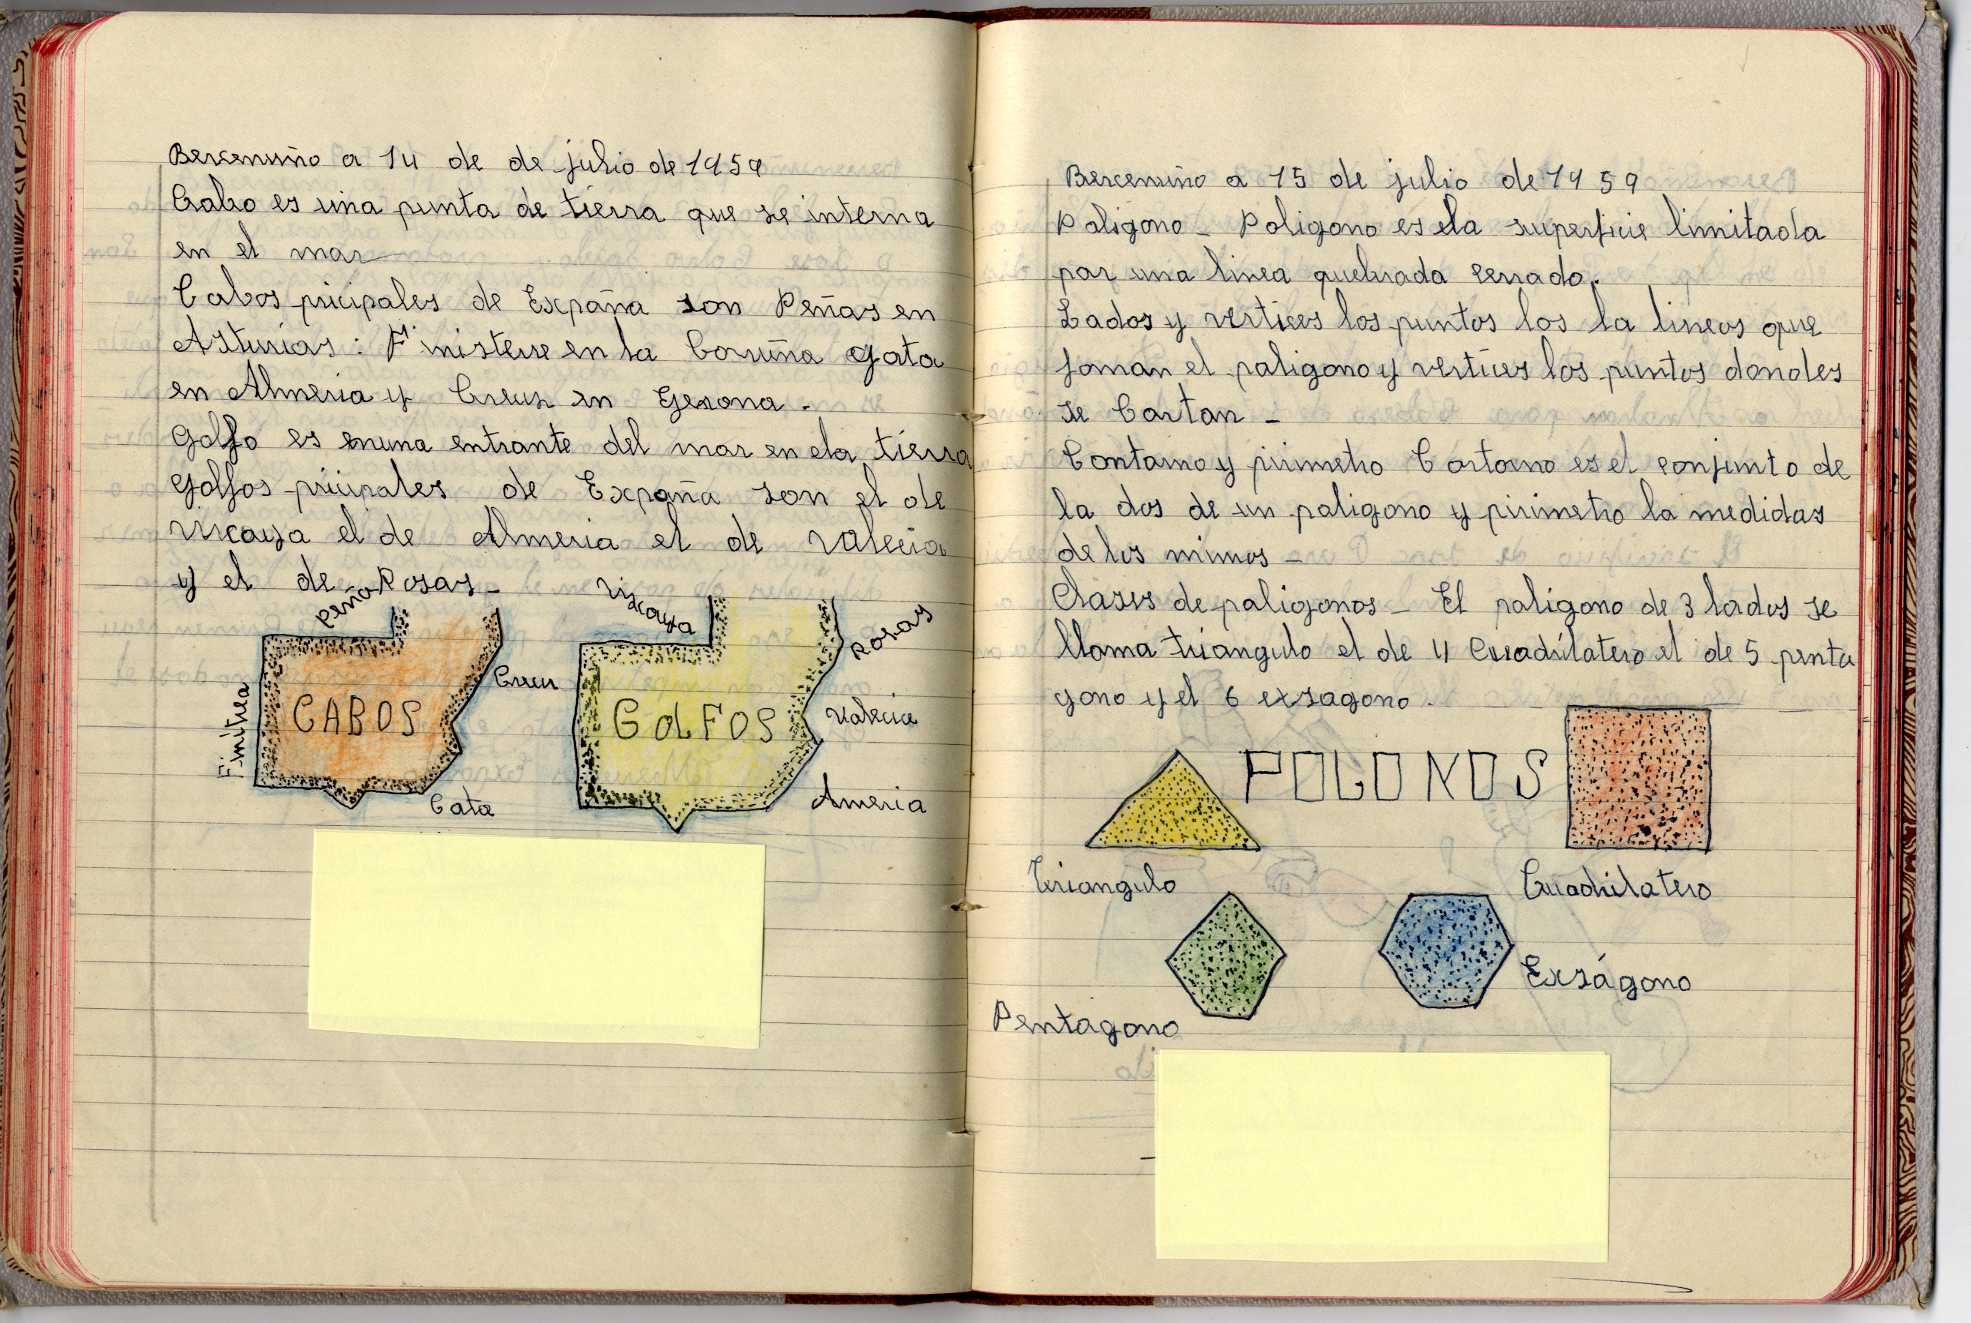 Bercenuño a 14 de de julio de 1959
Cabo es una punta de tierra que se interna
en el mar
Cabos pricipales de España son Peñas en
Asturias: Finisterre en la Coruña Gata
en Almeria y Creus en Gerona.
Golfo es enuna entrante del mar en ela tierra
Golfos pricipales de España son el de
Vizcaya el de Almeria el de Valecia
y el de Rosas -
Peña
Vizcaya
Rosas
Creus
Finitrea
CABOS
GOLFOS
Valecia
Gata
Ameria
Bercenuño a 15 de julio de 1959
Poligono - Poligono es ela superficie limitada
por una linea quebrada cerrada.
Lados y vertices los puntos los la lineas que
foman el poligono y vertices los puntos dondes
se Cortan -
Contorno y pirimetro Cortorno es el conjunto de
la dos de un poligono y pirimetro la medidas
de los mimos -
Clases de poligonos - El poligono de 3 lados se
llama triangulo el de 4 Cuadrilatero el de 5 penta
gono y el 6 exsagono.
POLONOS
Triangulo
Cuadrilatero
Exságono
Pentagono